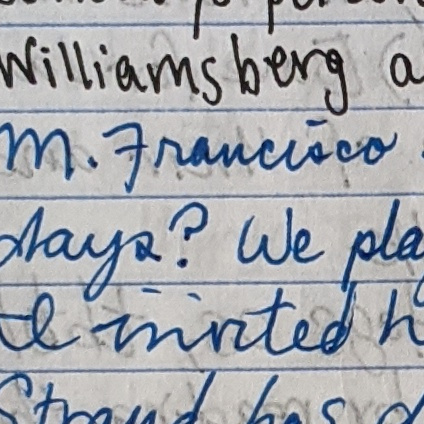 Williamsberg a
M. Francisco
days? We pla
invited h
Strand has d